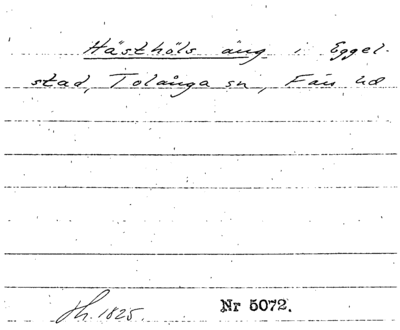 Hästhöls äng i Eggel-
stad, Tolånga sn, Färs hd
Sk. 1825.
Nr 5072.